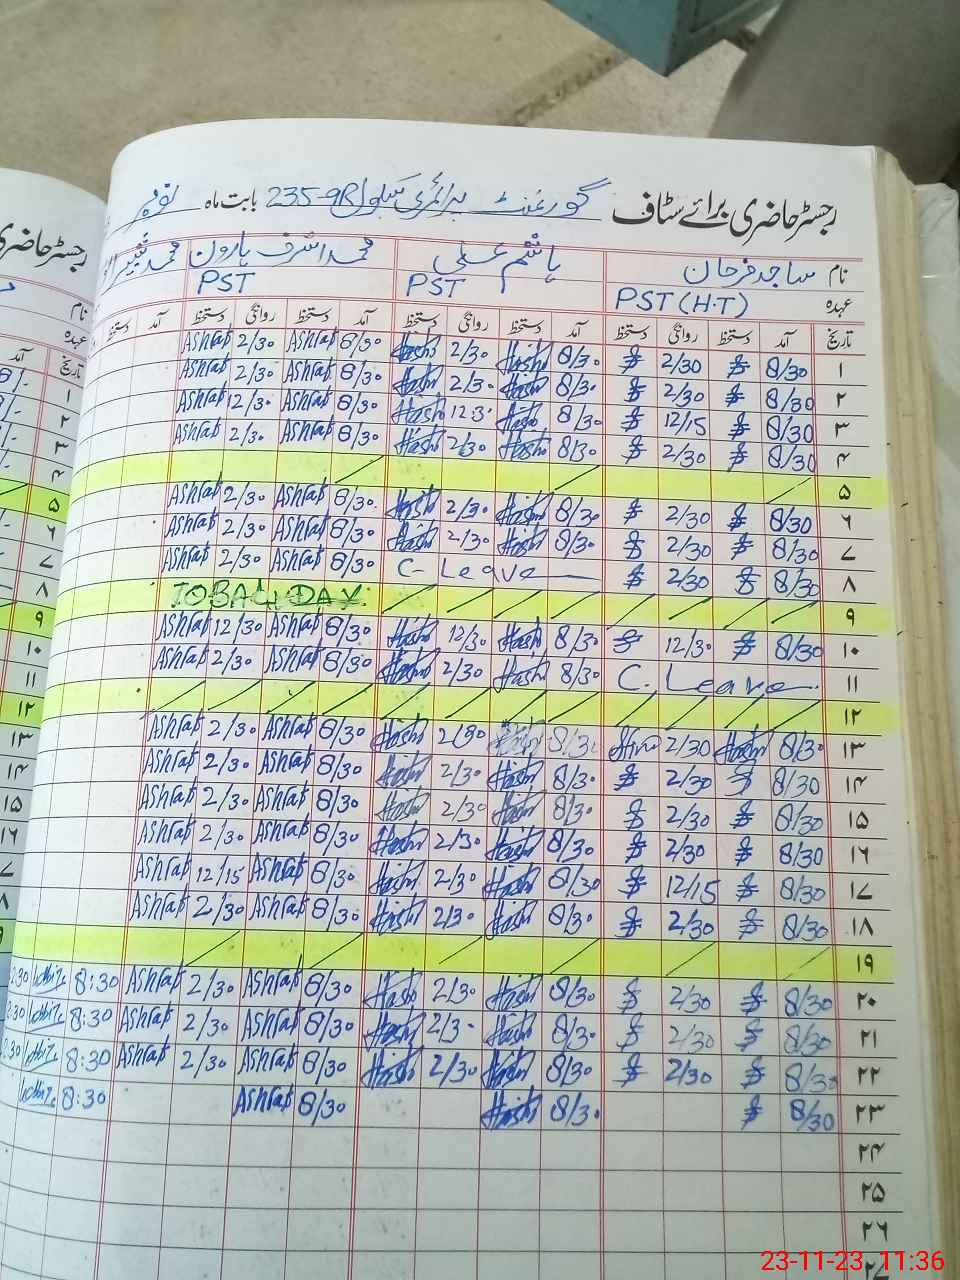 رجسٹر حاضری برائے سٹاف گورنمنٹ پرائمری سکول 235-9R بابت ماہ
نام ساجد فرحان ہاشم علی محمد اشرف ہارون
عہدہ PST (H.T) PST PST
تاریخ آمد دستخط روانگی دستخط آمد دستخط روانگی دستخط آمد دستخط روانگی دستخط آمد دستخط
۱ 8/30 2/30 8/30 Hashi 2/30 Hashi 8/30 Ashraf 2/30 Ashraf
۲ 8/30 2/30 8/30 Hashi 2/30 Hashi 8/30 Ashraf 2/30 Ashraf
۳ 8/30 12/15 8/30 Hashi 12:30 Hashi 8/30 Ashraf 12/30 Ashraf
۴ 8/30 2/30 8/30 Hashi 2/30 Hashi 8/30 Ashraf 2/30 Ashraf
۵
۶ 8/30 2/30 8/30 Hashi 2/30 Hashi 8/30 Ashraf 2/30 Ashraf
۷ 8/30 2/30 8/30 Hashi 2/30 Hashi 8/30 Ashraf 2/30 Ashraf
۸ 8/30 2/30 C- Leave 8/30 Ashraf 2/30 Ashraf
۹ DAY
۱۰ 8/30 12/30 8/30 Hashi 12/30 Hashi 8/30 Ashraf 12/30 Ashraf
۱۱ C. Leave 8/30 Hashi 2/30 Hashi 8/30 Ashraf 2/30 Ashraf
۱۲
۱۳ 8/30 Hashi 2/30 8/30 2/30 Hashi 8/30 Ashraf 2/30 Ashraf
۱۴ 8/30 2/30 8/30 Hashi 2/30 Hashi 8/30 Ashraf 2/30 Ashraf
۱۵ 8/30 2/30 8/30 Hashi 2/30 Hashi 8/30 Ashraf 2/30 Ashraf
۱۶ 8/30 2/30 8/30 Hashi 2/30 Hashi 8/30 Ashraf 2/30 Ashraf
۱۷ 8/30 12/15 8/30 Hashi 2/30 Hashi 8/30 Ashraf 12/15 Ashraf
۱۸ 8/30 2/30 8/30 Hashi 2/30 Hashi 8/30 Ashraf 2/30 Ashraf
۱۹
۲۰ 8/30 2/30 8/30 Hashi 2/30 Hashi 8/30 Ashraf 2/30 Ashraf 8:30
۲۱ 8/30 2/30 8/30 Hashi 2/30 Hashi 8/30 Ashraf 2/30 Ashraf 8:30
۲۲ 8/30 2/30 8/30 Hashi 2/30 Hashi 8/30 Ashraf 2/30 Ashraf 8:30
۲۳ 8/30 8/30 Hashi 8/30 Ashraf 8:30
۲۴
۲۵
۲۶
23-11-23 11:36